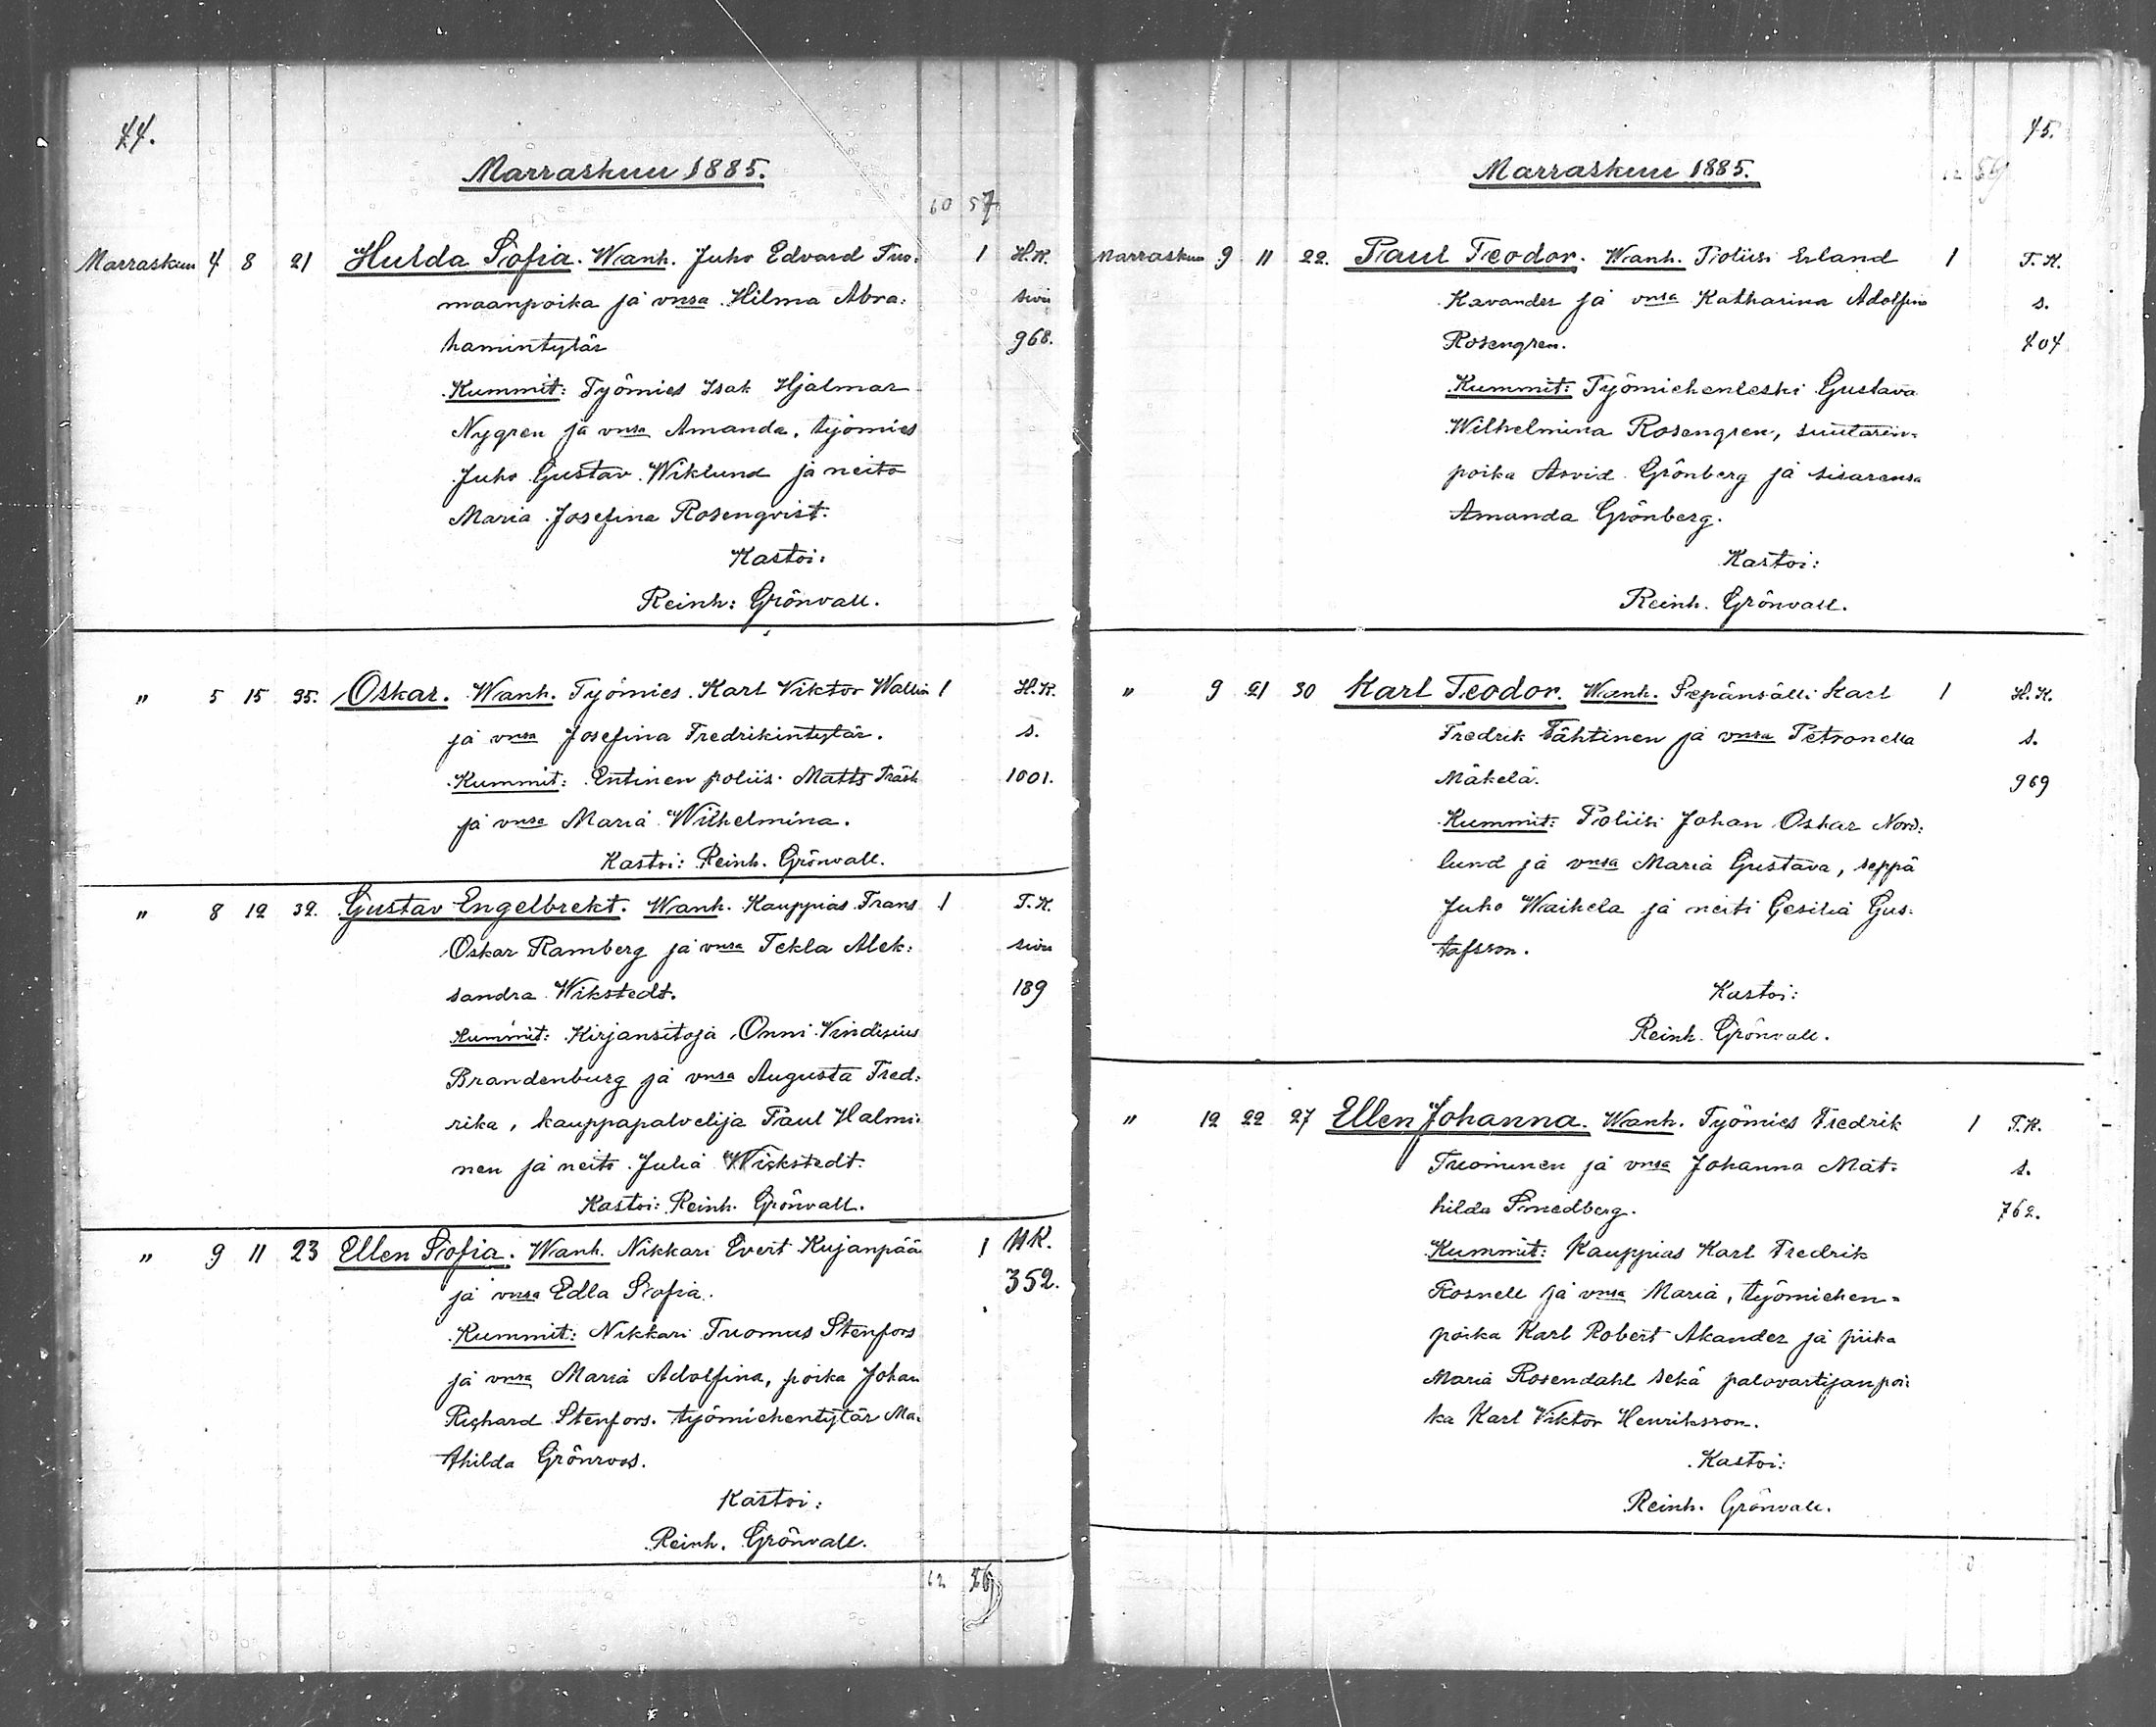 44.
Marraskuu 1885.
60 57
Marraskuu 4 8 21 Hulda Sofia. Wanh. Juho Edvard Tuo: 1 H.K.
maanpoika ja vnsa Hilma Abra: sivu
hamintytär 968.
Kummit: Työmies Isak Hjalmar
Nygren ja vnsa Amanda, työmies
Juho Gustav Wiklund ja neito
Maria Josefina Rosenqvist.
Kastoi:
Reinh: Grönvall.
" 5 15 35. Oskar. Wanh. Työmies Karl Viktor Wallin 1 H.K.
ja vnsa Josefina Fredrikintytär. s.
Kummit: Entinen poliis Matts Träsk 1001.
ja vnsa Maria Wilhelmina.
Kastoi: Reinh. Grönvall.
" 8 12 32. Gustav Engelbrekt. Wanh. Kauppias Frans 1 T.K.
Oskar Ramberg ja vnsa Tekla Alek: sivu
sandra Wikstedt. 189
Kummit: Kirjansitoja Onni
Brandenburg ja vnsa Augusta Fred:
rika, kauppapalvelija Paul Halmi:
nen ja neito Julia Wickstedt.
Kastoi: Reinh. Grönvall.
" 9 11 23 Ellen Sofia. Wanh. Nikkari Evert Kujanpää 1 HK.
ja vnsa Edla Sofia. 352.
Kummit: Nikkari Tuomas Stenfors
ja vnsa Maria Adolfina, poika Johan
Richard Stenfors. työmiehentytär Ma:
thilda Grönroos.
Kastoi:
Reinh. Grönvall.
62
45.
Marraskuu 1885.
59
Marraskuu 9 11 22. Paul Teodor. Wanh. Poliisi Erland 1 T.K.
Kavander ja vnsa Katharina Adolfina s.
Rosengren. 404
Kummit: Työmiehenleski Gustava
Wilhelmina Rosengren, suutarin-
poika Arvid Grönberg ja sisarensa
Amanda Grönberg.
Kastoi:
Reinh. Grönvall.
" 9 21 30 Karl Teodor. Wanh. Sepänsälli Karl 1 H.K.
Fredrik Tähtinen ja vnsa Petronella s.
Mäkelä. 969
Kummit: Poliisi Johan Oskar Nord:
lund ja vnsa Maria Gustava, seppä
Juho Waihela ja neiti Cesilia Gus:
tafsson.
Kastoi:
Reinh. Grönvall.
" 12 22 27 Ellen Johanna. Wanh. Työmies Fredrik 1 T.K.
Tuominen ja vnsa Johanna Mat: s.
hilda Smedberg. 762.
Kummit: Kauppias Karl Fredrik
Rosnell ja vnsa Maria, työmiehen-
poika Karl Robert Akander ja piika
Maria Rosendahl sekä palovartijanpoi:
ka Karl Viktor Henriksson.
Kastoi:
Reinh. Grönvall.